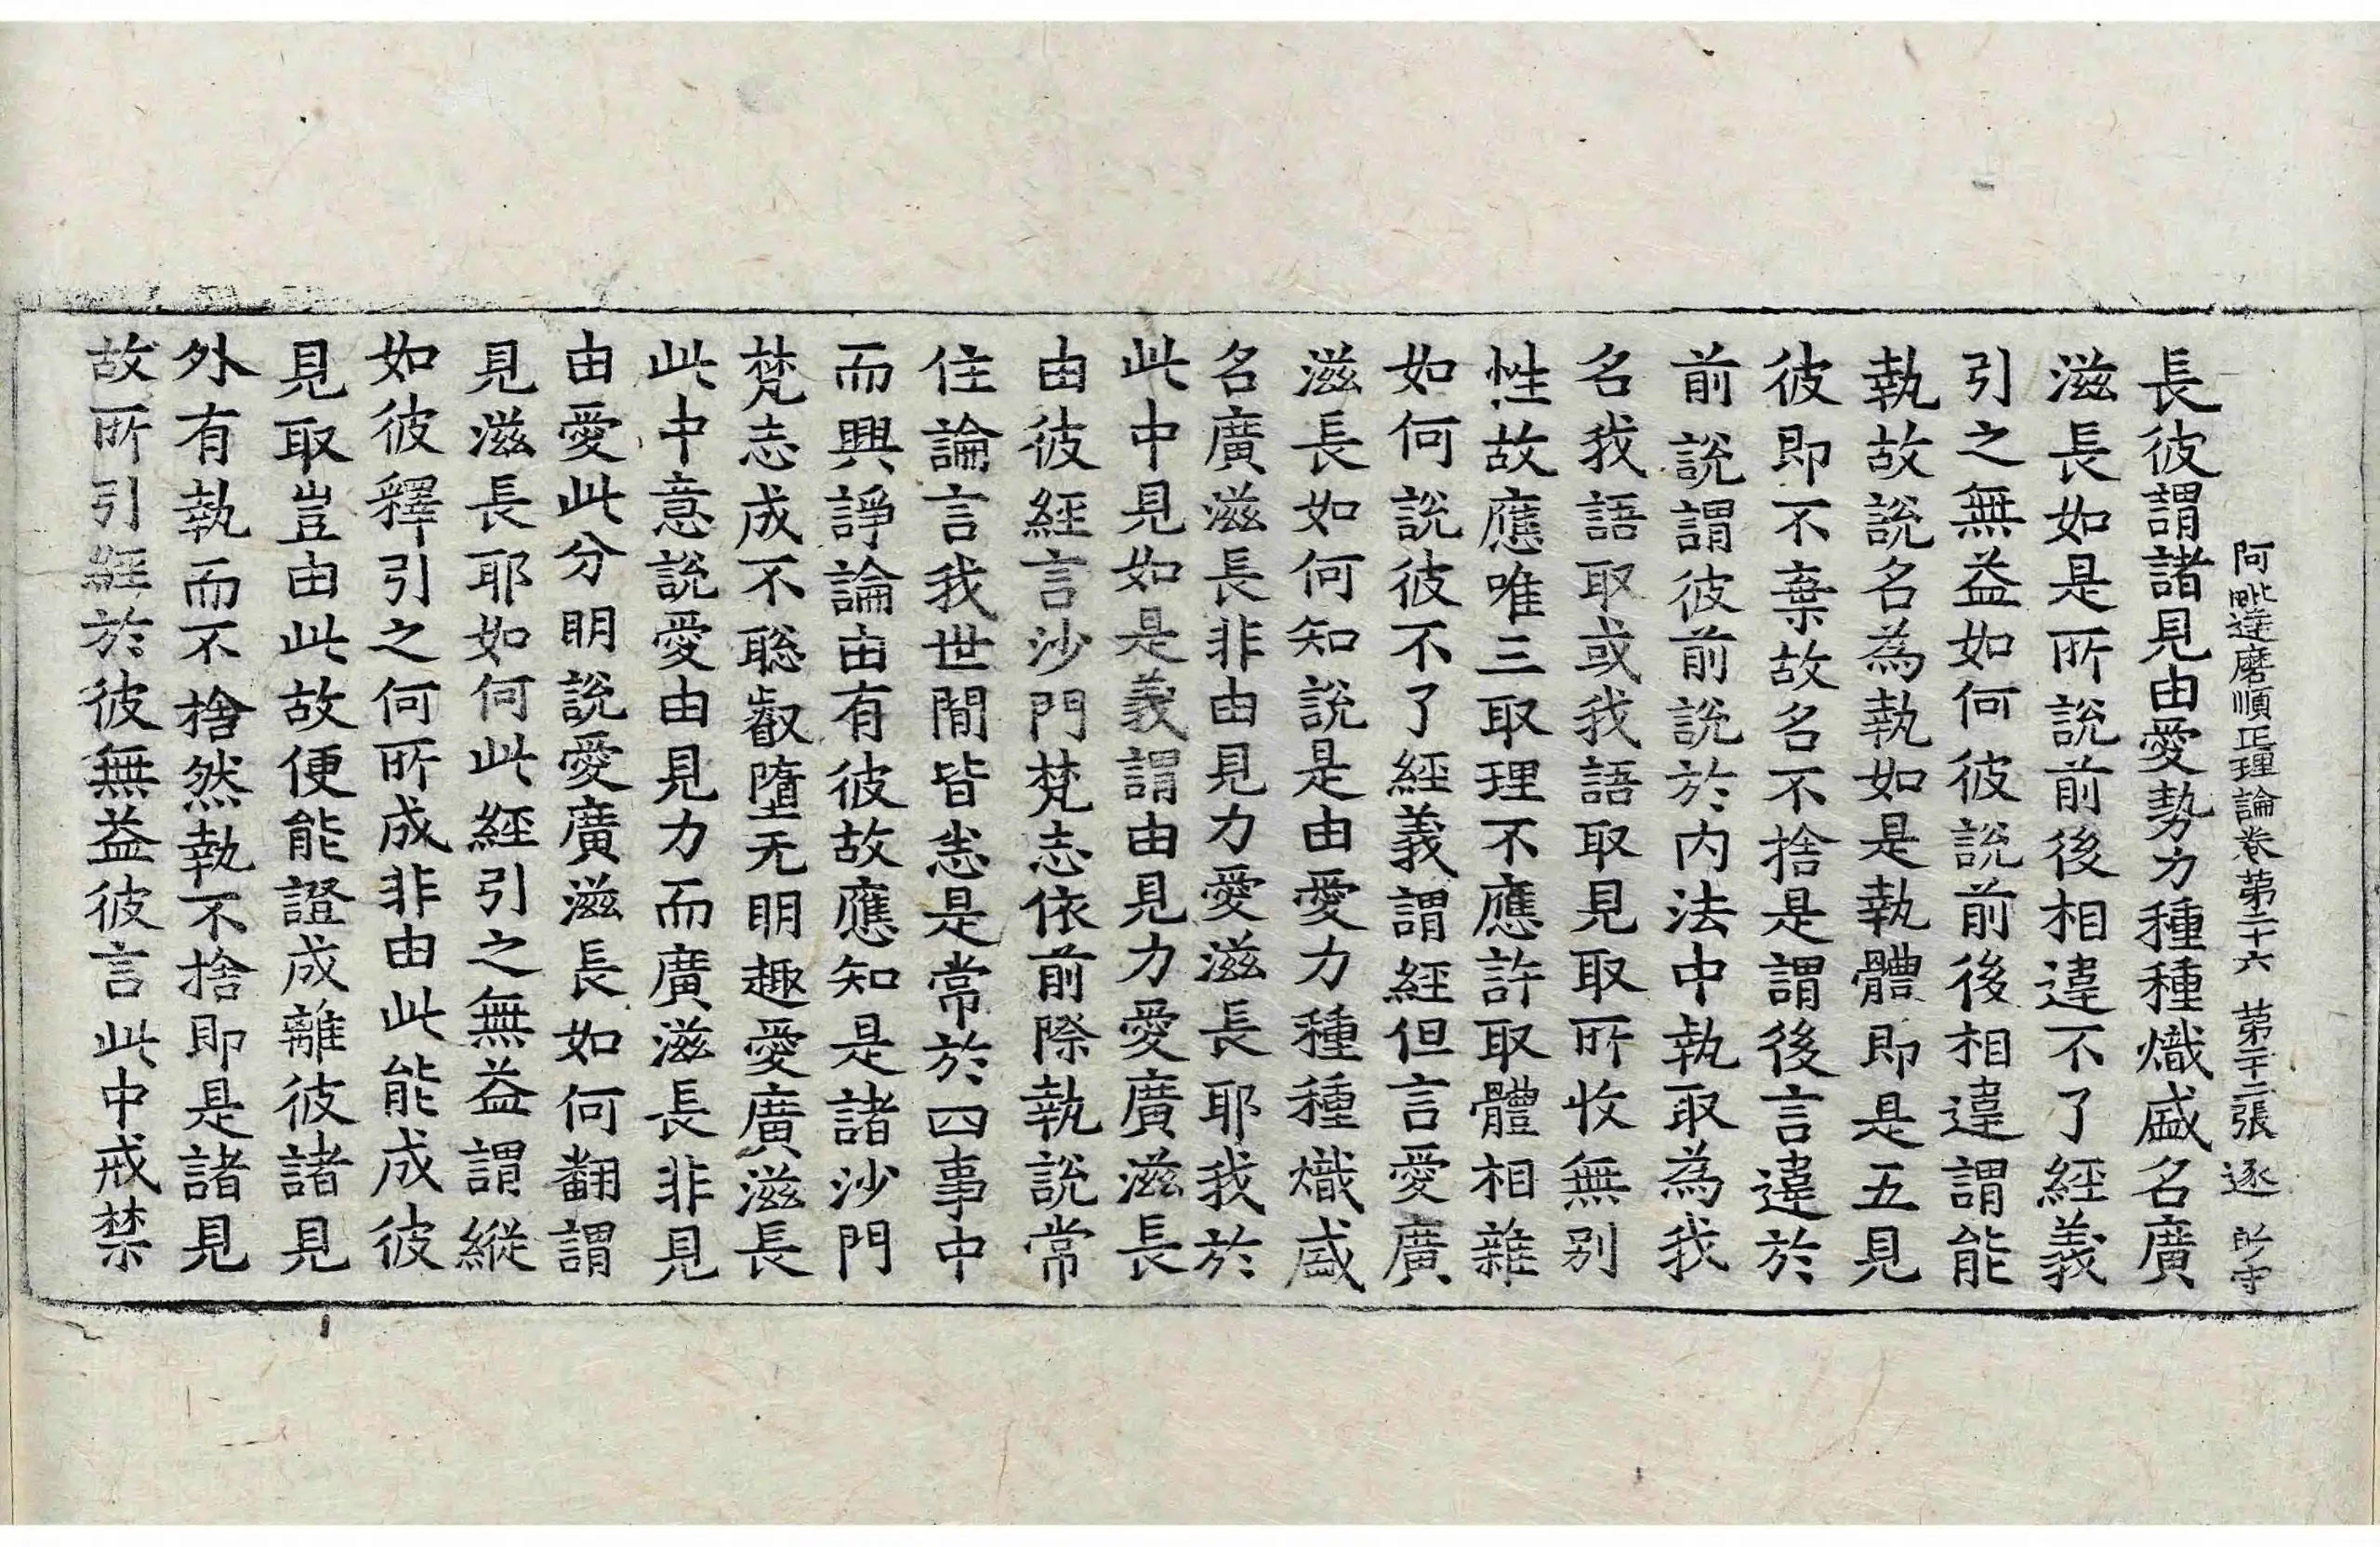 阿毗達磨順正理論卷苐二十六 苐二十二張 逐
長彼謂諸見由愛勢力種種熾盛名廣
滋長如是所說前後相違不了經義
引之無益如何彼說前後相違謂能
執故說名為執如是執體即是五見
彼即不棄故名不捨是謂後言違於
前說謂彼前說於内法中執取為我
名我語取或我語取見取所收無别
性故應唯三取理不應許取體相雜
如何說彼不了經義謂經但言愛廣
滋長如何知說是由愛力種種熾盛
名廣滋長非由見力愛滋長耶我於
此中見如是義謂由見力愛廣滋長
由彼經言沙門梵志依前際執說常
住論言我世間皆悉是常於四事中
而興諍論由有彼故應知是諸沙門
梵志成不聡叡墮无明趣愛廣滋長
此中意說愛由見力而廣滋長非見
由愛此分明說愛廣滋長如何翻謂
見滋長耶如何此經引之無益謂縱
如彼釋引之何所成非由此能成彼
見取豈由此故便能證成離彼諸見
外有執而不捨然執不捨即是諸見
故所引經於彼無益彼言此中戒禁